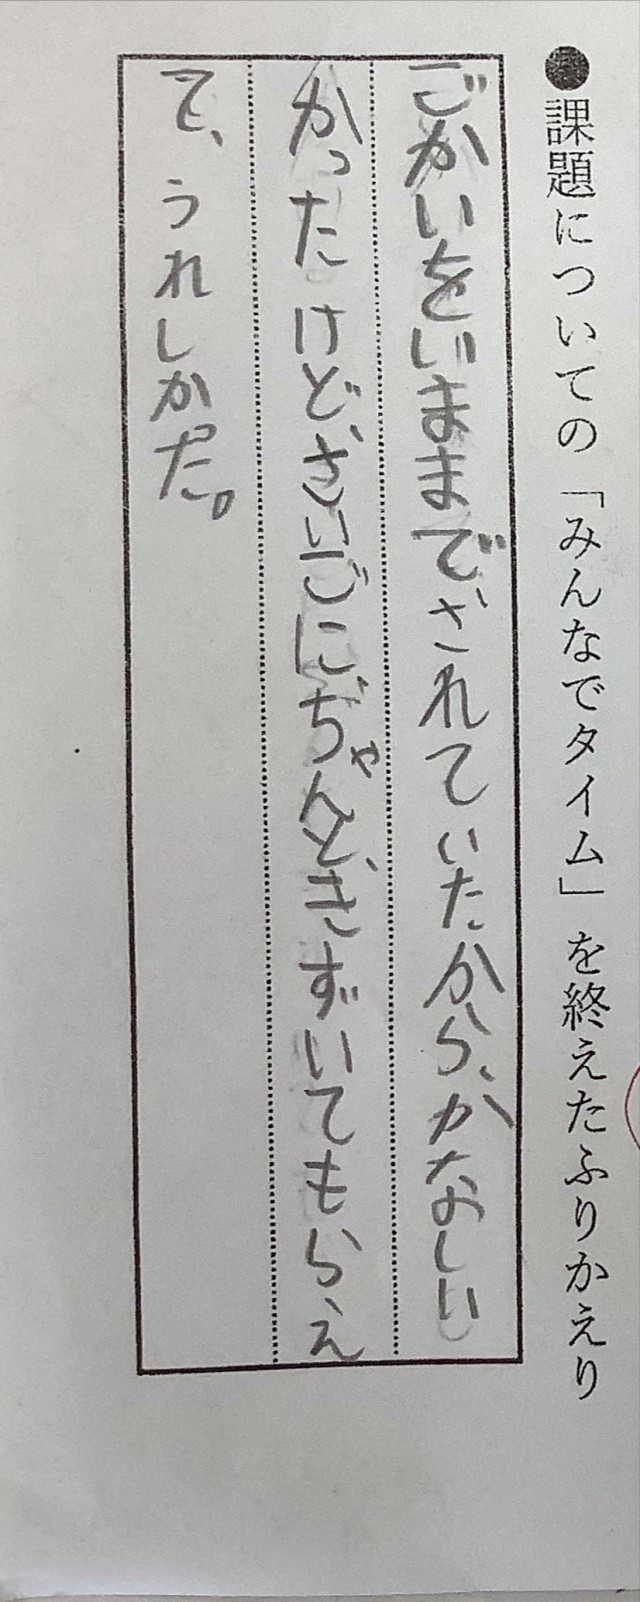 ●課題についての「みんなでタイム」を終えたふりかえり
ごかいをいままでされていたから、かなしい
かったけど、さいごにぢゃんと、きずいてもらえ
て、うれしかった。